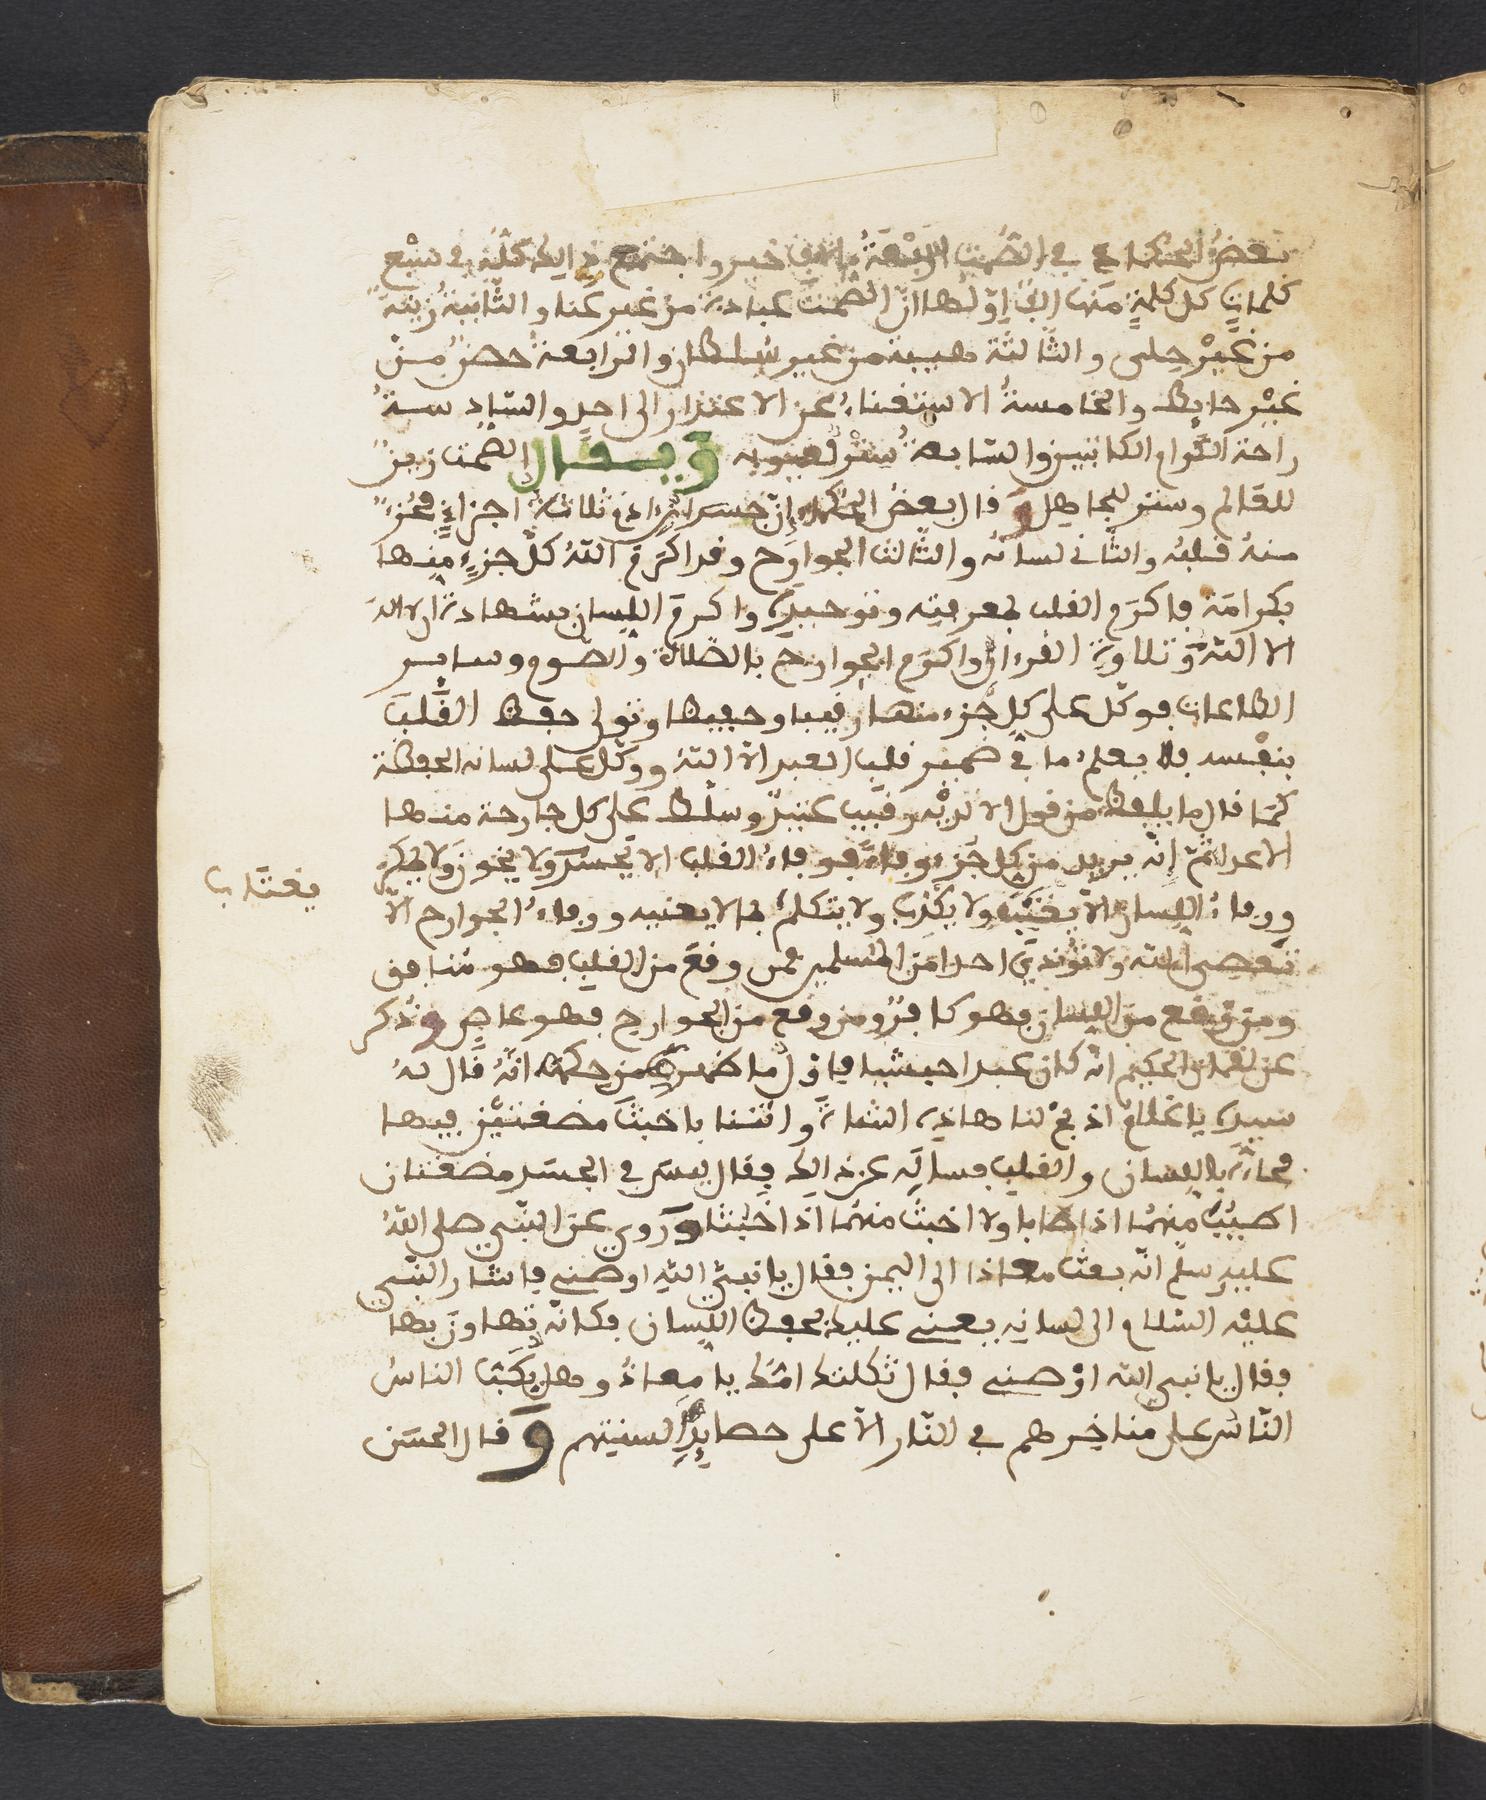 بعض الحكماء في الصمت اربعة الاف خير واجتمع ذالك كله في سبع
كلمات كل كلمة منها الف اولها ان الصمت عبادة من غير عنا والثانية زينة
من غير حلى والثالثة هيبة من غير سلطان والرابعة حصن من
غير حايط والخامسة الاستغناء عن الاعتذار الى احد والسادسة
راحة الكرام الكاتبين والسابعة ستر لعيوبه ويقال الصمت زين
للعالم وستر للجاهل وقال بعض الحكماء ان جسد ابن ءادم ثلاثة اجزاء فجزء
منه قلبه والثاني لسانه والثالث الجوارح وقد اكرم الله كل جزء منها
بكرامة فاكرم القلب لمعرفته وتوحيده واكرم اللسان بشهادة ان لا اله
الا الله وتلاوة القرءان واكرم الجوارح بالصلاة والصوم وساير
الطاعات فوكل على كل جزء منها رقيبا وحفيظا وتولى حفظ القلب
بنفسه فلا يعلم ما في ضمير قلب العبد الا الله ووكل على لسانه الحفظة
كما قال ما يلفظ من قول الا لديه رقيب عتيد وسلط على كل جارحة منها
الاعدا ثم انه يريد من كل جزء وفاء فوفاء القلب الا يحسد ولا يخون ولا يمكر
ووفاء اللسان الا يغتب ولا يكذب ولا يتكلم بما لا يعنيه ووفاء الجوارح الا
يغتاب
تعصى الله ولا تؤذي احدا من المسلمين فمن وقع من القلب فهو منافق
ومن وقع من اللسان فهو كافر ومن وقع من الجوارح فهو عاص وذكر
عن لقمان الحكيم انه كان عبدا حبشيا فاول ما ظهر من حكمته انه قال له
سيده يا غلام اذبح لنا هاذه الشاة واتنا باخبث مضغتين فيها
فجاءه باللسان والقلب فساله عن ذالك فقال ليس في الجسد مضغتان
اطيب منهما اذا طابا ولا اخبث منهما اذا خبثا وروي عن النبي صلى الله
عليه وسلم انه بعث معاذا الى اليمن فقال يا نبي الله اوصني فاشار النبي
عليه السلام الى لسانه يعني عليك بحفظ اللسان فكانه تهاون بها
فقال يا نبي الله اوصني فقال ثكلتك امك يا معاذ وهل يكب الناس
الناس على مناخرهم في النار الا على حصايد السنتهم وقال الحسن